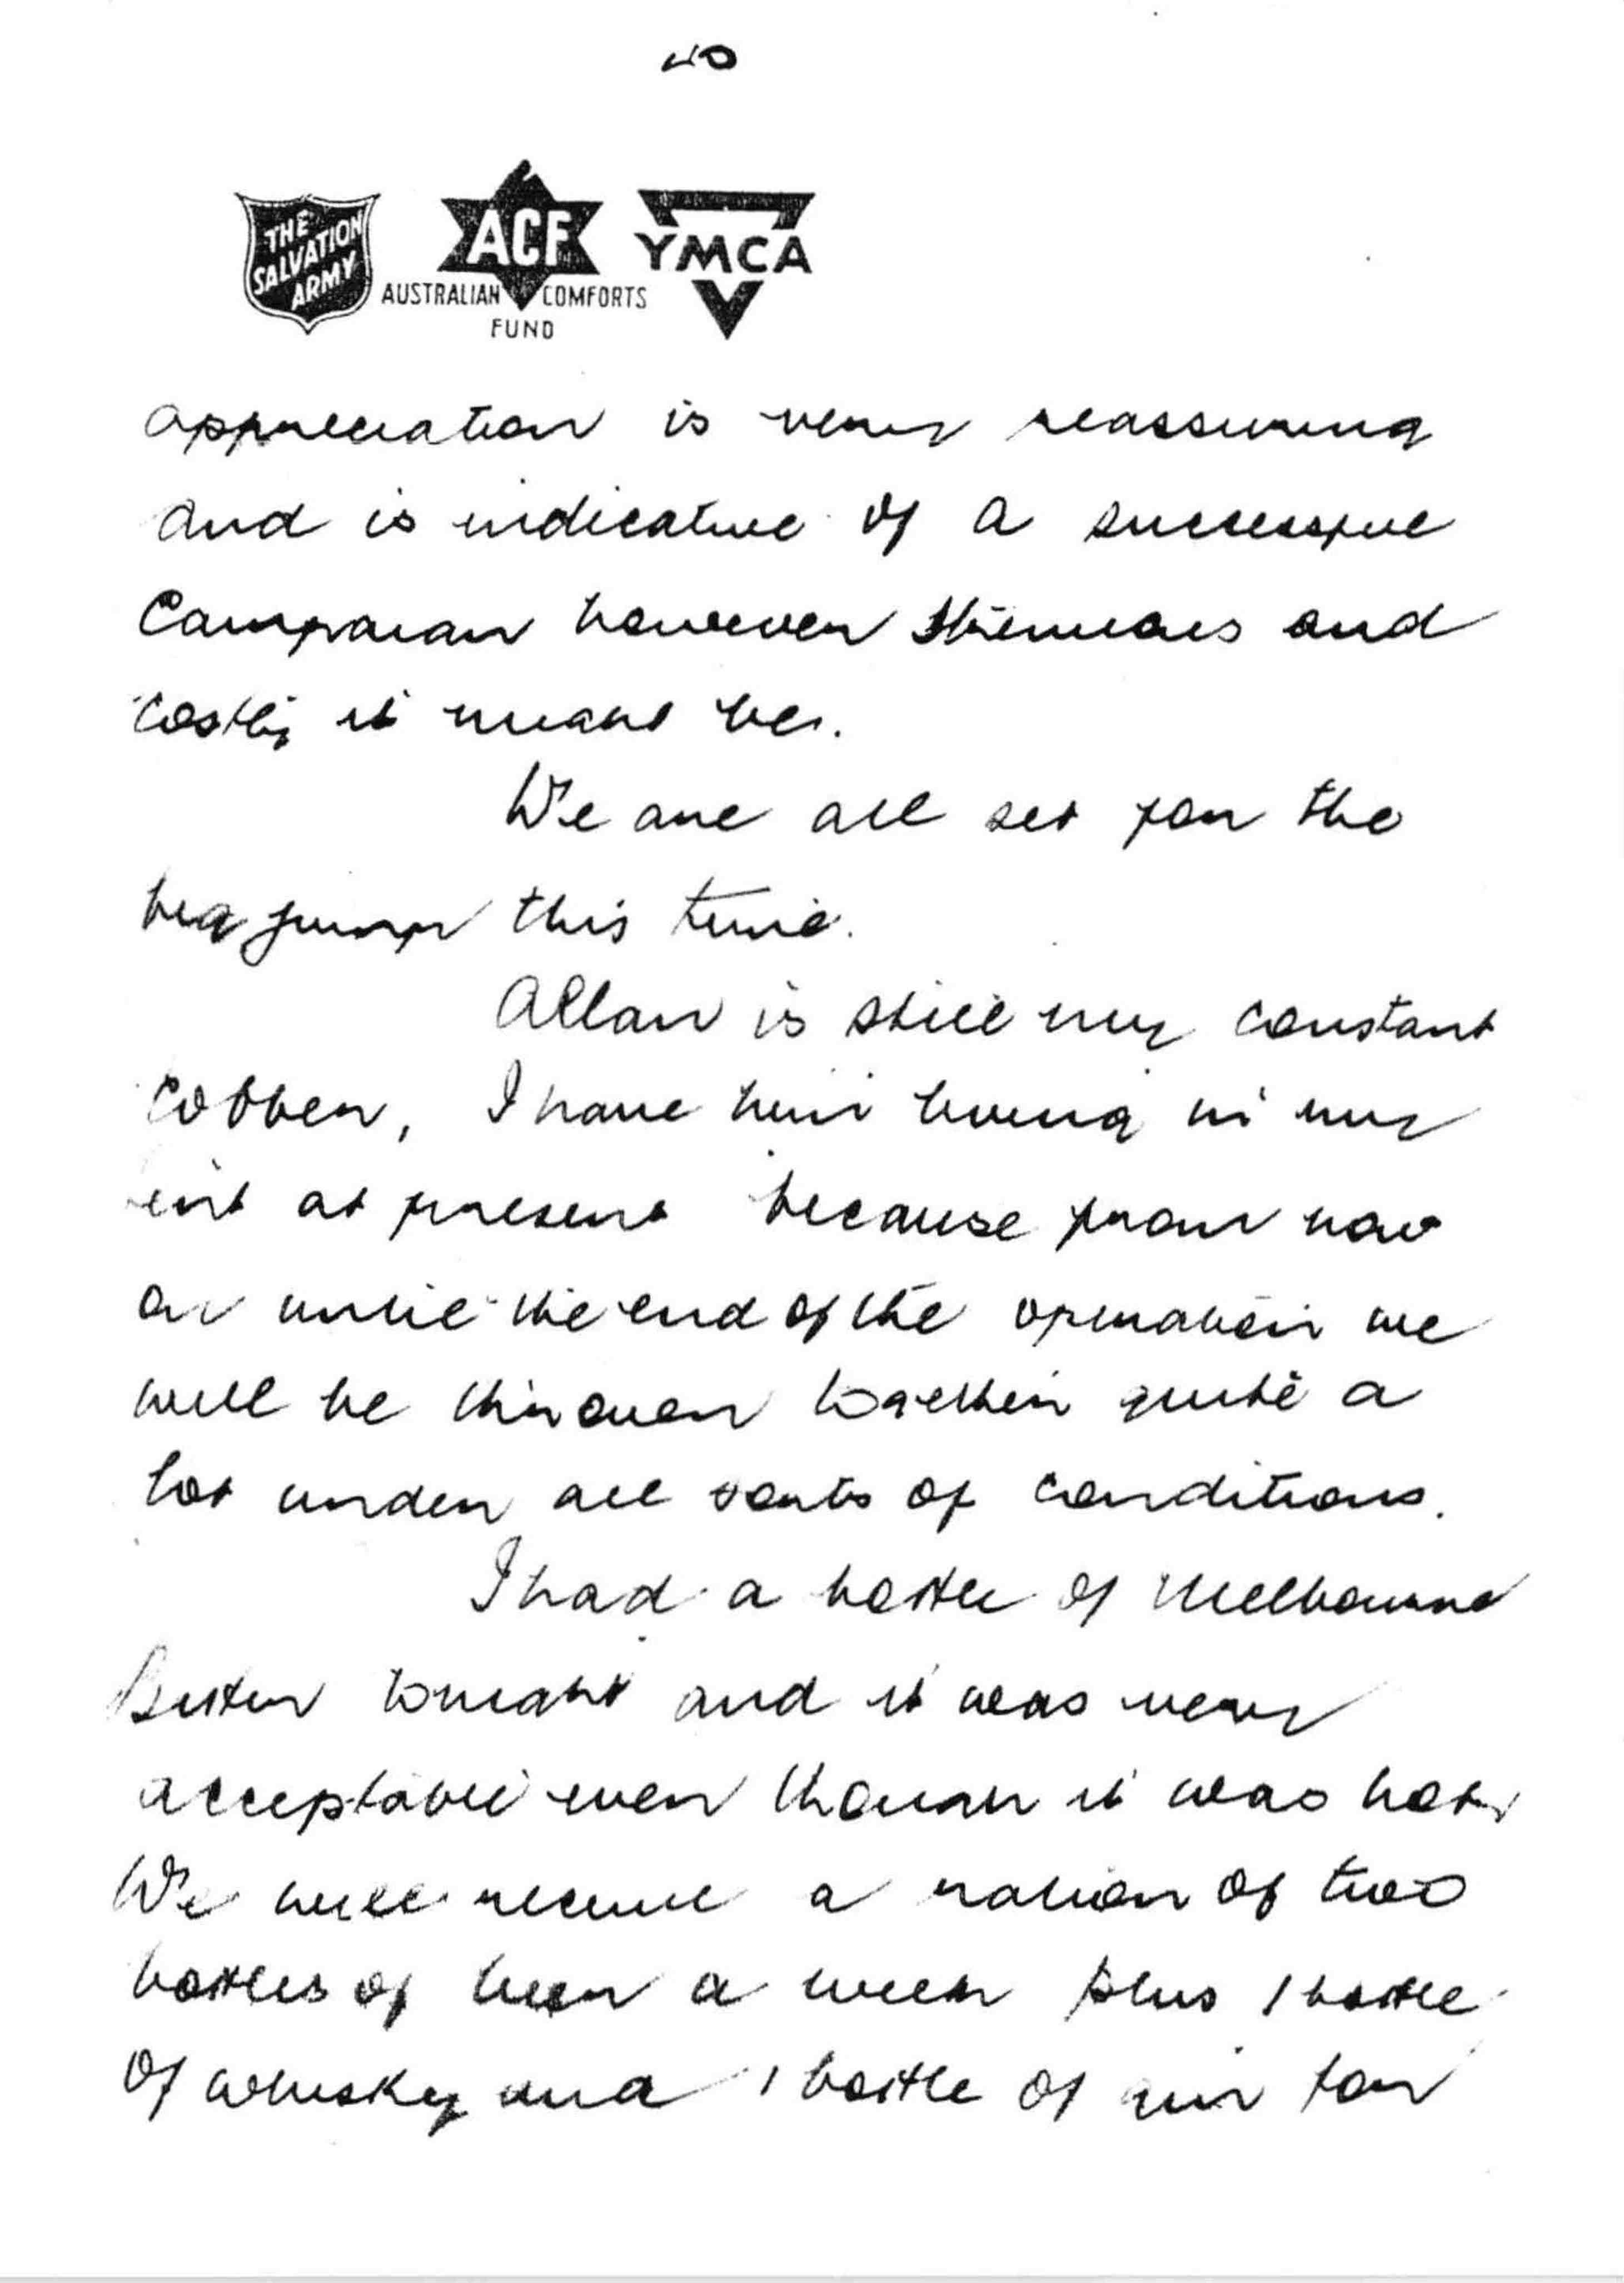 THE
SALVATION
ARMY
ACF
AUSTRALIAN COMFORTS
FUND
YMCA
appreciation is very reassuring
and is indicative of a successful
Campaign however strenuous and
costly it might be.
We are all set for the
big jump this time.
Allan is still my constant
Cobber, I have him living in my
tent at present because from now
on until the end of the operation we
will be thrown together quite a
lot under all sorts of conditions.
I had a bottle of Melbourne
Bitter tonight and it was very
acceptable even though it was hot.
We will receive a ration of two
bottles of beer a week plus 1 bottle
of whisky and 1 bottle of gin for